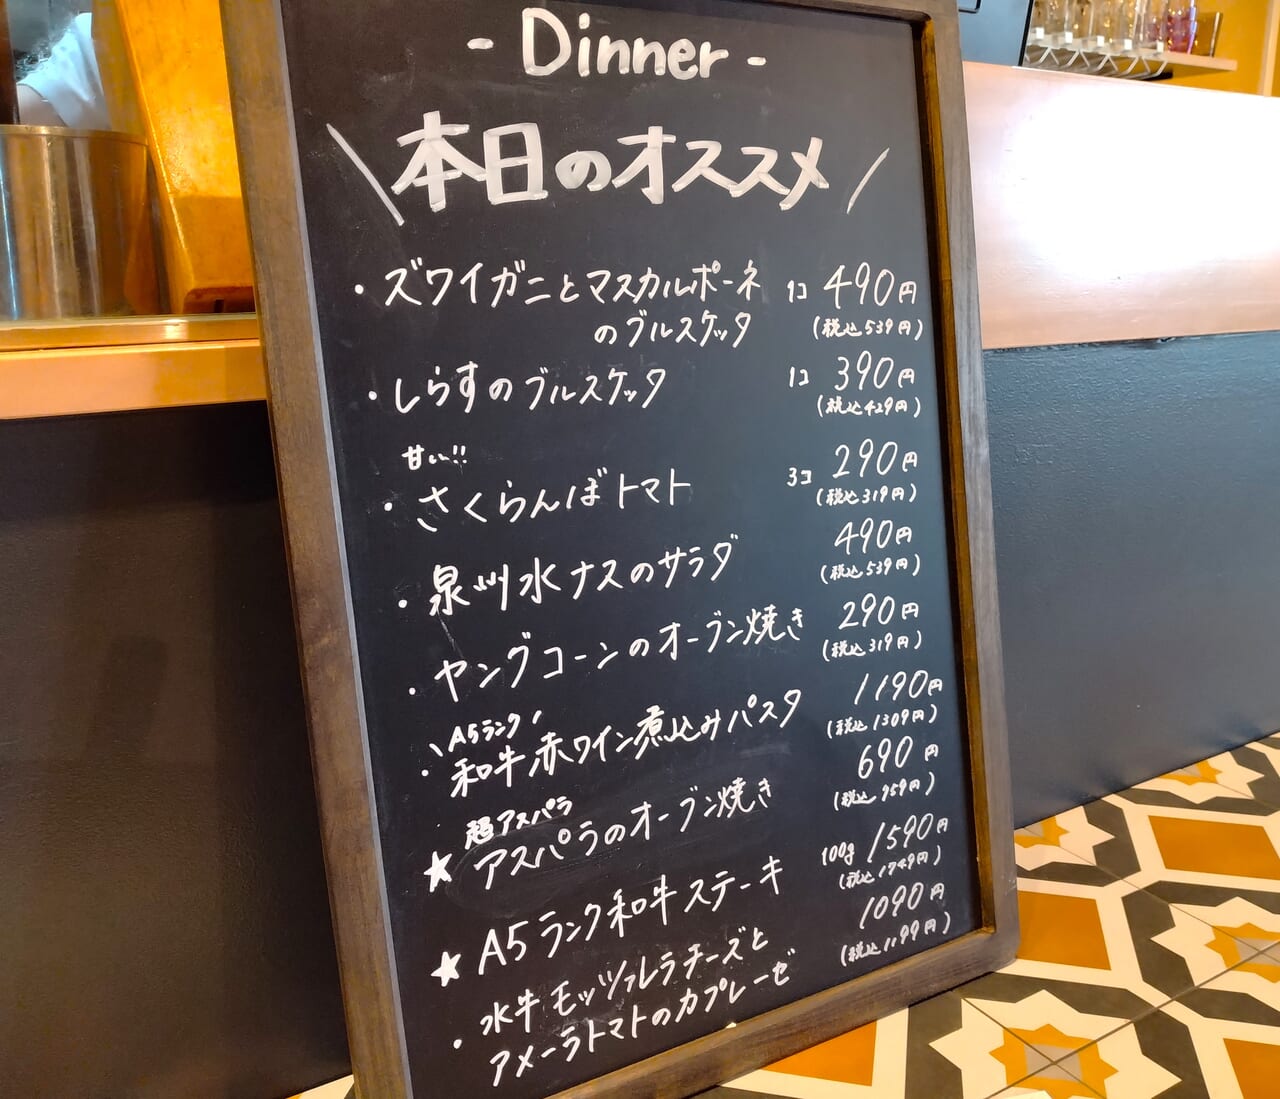 - Dinner -
\ 本日のオススメ /
・ズワイガニとマスカルポーネ 1コ 490円
のブルスケッタ (税込539円)
・しらすのブルスケッタ 1コ 390円
(税込429円)
甘い!!
・さくらんぼトマト 3コ 290円
(税込319円)
・泉州水ナスのサラダ 490円
(税込539円)
・ヤングコーンのオーブン焼き 290円
(税込319円)
\ A5ランク /
・和牛赤ワイン煮込みパスタ 1190円
(税込1309円)
超アスパラ
★アスパラのオーブン焼き 690円
(税込759円)
★A5ランク和牛ステーキ 100g 1590円
(税込1749円)
・水牛モッツァレラチーズと 1090円
アメーラトマトのカプレーゼ (税込1199円)